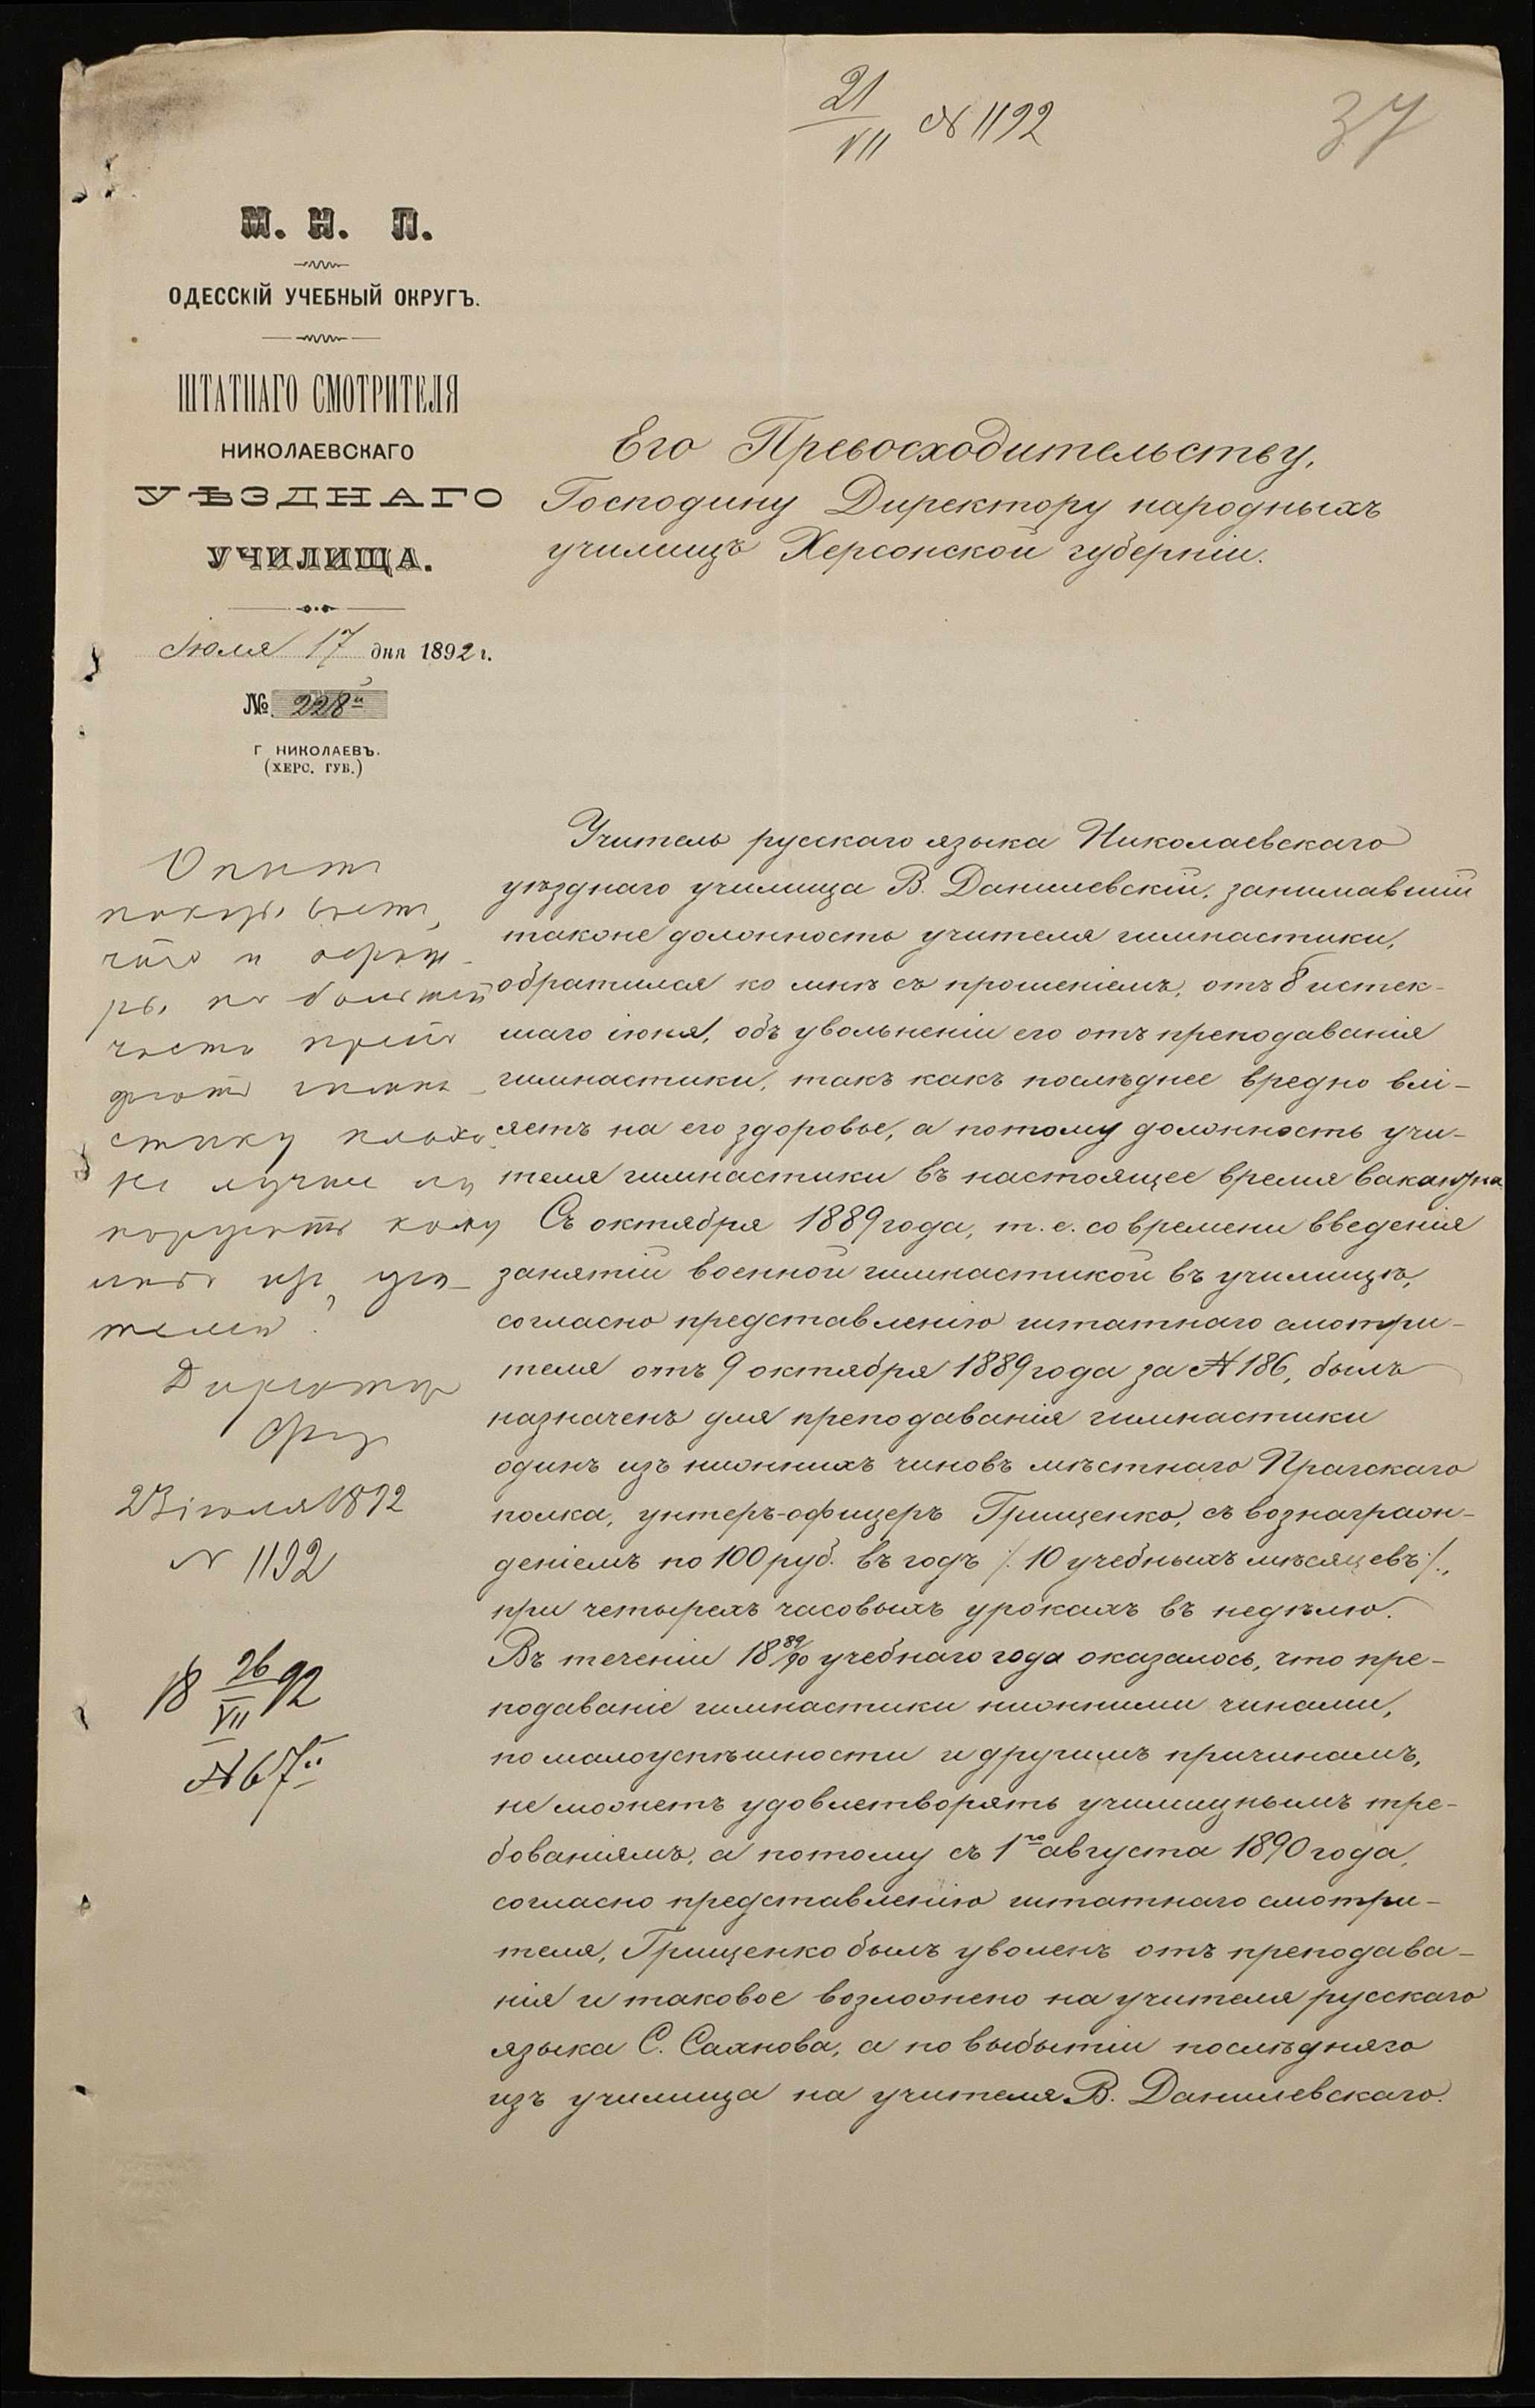 21/VII № 1192
37
М. Н. П.
ОДЕССКІЙ УЧЕБНЫЙ ОКРУГЪ.
ШТАТНАГО СМОТРИТЕЛЯ
НИКОЛАЕВСКАГО
УѢЗДНАГО
УЧИЛИЩА.
Іюля 17 дня 1892 г.
№ 228й
Г НИКОЛАЕВЪ.
(ХЕРС. ГУБ.)
Его Превосходительству,
Господину Директору народныхъ
училищъ Херсонской губерніи.
Учитель русскаго языка Николаевскаго
уѣзднаго училища В. Данилевскій, занимавшій
также должность учителя гимнастики,
обратился ко мнѣ съ прошеніемъ, отъ 8 истек-
шаго іюня, объ увольненіи его отъ преподаванія
гимнастики, такъ какъ послѣднее вредно влі-
яетъ на его здоровье, а потому должность учи-
теля гимнастики въ настоящее время вакантна
Съ октября 1889 года, т. е. со времени введенія
занятій военной гимнастикой въ училищѣ,
согласно представленію штатнаго смотри-
теля отъ 9 октября 1889 года за № 186, былъ
назначенъ для преподаванія гимнастики
одинъ изъ нижнихъ чиновъ мѣстнаго Прагскаго
полка, унтеръ-офицеръ Грищенко, съ вознаграж-
деніемъ по 100 руб. въ годъ /. 10 учебныхъ мѣсяцевъ /.,
при четырехъ часовыхъ урокахъ въ недѣлю.
Въ теченіи 18 89/90 учебнаго года оказалось, что пре-
подаваніе гимнастики нижними чинами,
по малоуспѣшности и другимъ причинамъ,
не можетъ удовлетворять училищнымъ тре-
бованіямъ, а потому съ 1го августа 1890 года,
согласно представленію штатнаго смотри-
теля, Грищенко былъ уволенъ отъ преподава-
нія и таковое возложено на учителя русскаго
языка С. Сахнова, а по выбытіи послѣдняго
изъ училища на учителя В. Данилевскаго.
Опытъ
что и
по большей
гимна-
стику плохо
Не лучше ли
поручить кому
либо изъ учи-
телей?
Директоръ
23 іюля 1892
№ 1192
18 26/VII 92
№ 67й